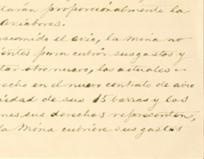 larán proporcionalmente la
aviadores.
ascendido el avio, la mina no
entos para cubrir sus gastos y
tar otro nuevo, los actuales
echo en el nuevo contrato de avio
iedad de sus 15 barras y los
nes sus derechos representen,
la Mina cubriere sus gastos